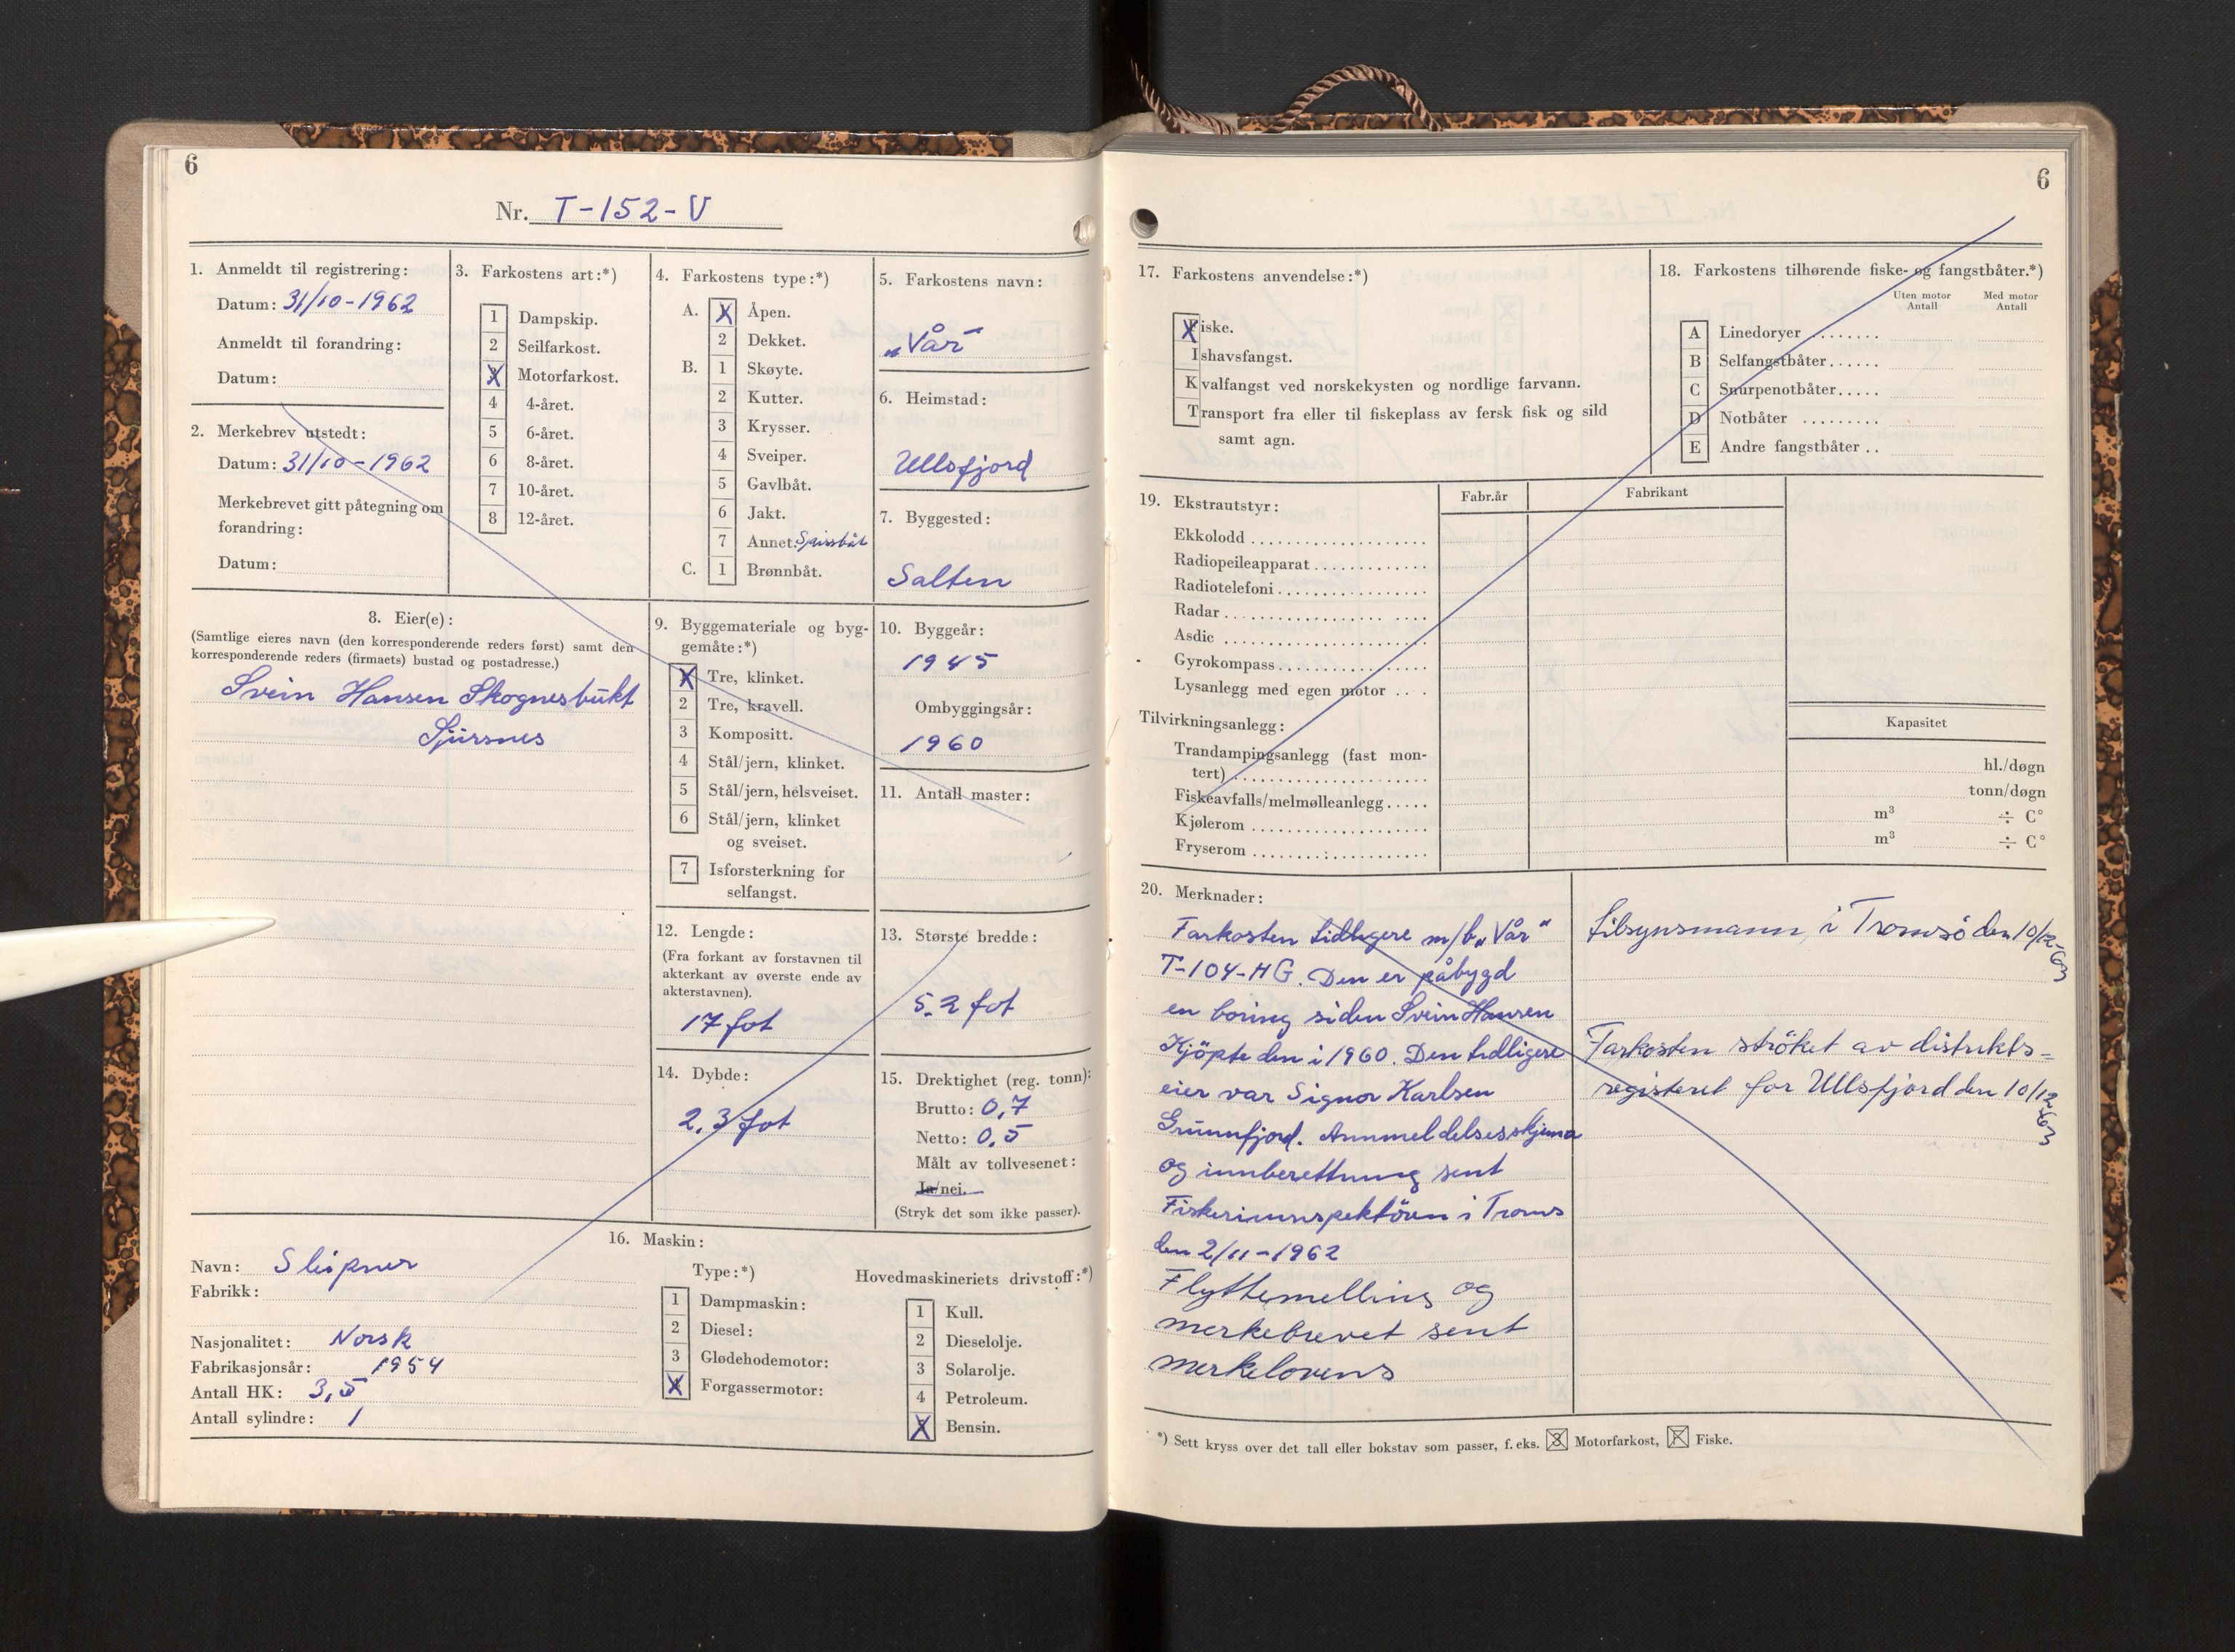 6
Nr. T-152-V
1. Anmeldt til registrering:
Datum: 31/10-1962
Anmeldt til forandring:
Datum:
2. Merkebrev utstedt:
Datum: 31/10-1962
Merkebrevet gitt påtegning om
forandring:
Datum:
3. Farkostens art:*)
1 Dampskip.
2 Seilfarkost.
X Motorfarkost.
4 4-året.
5 6-året.
6 8-året.
7 10-året.
8 12-året.
4. Farkostens type:*)
A. X Åpen.
2 Dekket.
B. 1 Skøyte.
2 Kutter.
3 Krysser.
4 Sveiper.
5 Gavlbåt.
6 Jakt.
7 Annet: Spissbåt
C. 1 Brønnbåt.
5. Farkostens navn:
„Vår"
6. Heimstad:
Ullsfjord
7. Byggested:
Salten
8. Eier(e):
(Samtlige eieres navn (den korresponderende reders først) samt den
korresponderende reders (firmaets) bustad og postadresse.)
Svein Hansen Skognesbukt
Sjursnes
9. Byggemateriale og byg-
gemåte:*)
X Tre, klinket.
2 Tre, kravell.
3 Kompositt.
4 Stål/jern, klinket.
5 Stål/jern, helsveiset.
6 Stål/jern, klinket
og sveiset.
7 Isforsterkning for
selfangst.
10. Byggeår:
1945
Ombyggingsår:
1960
11. Antall master:
12. Lengde:
(Fra forkant av forstavnen til
akterkant av øverste ende av
akterstavnen).
17 fot
13. Største bredde:
5.2 fot
14. Dybde:
2,3 fot
15. Drektighet (reg. tonn):
Brutto: 0,7
Netto: 0,5
Målt av tollvesenet:
Ja/nei.
(Stryk det som ikke passer).
16. Maskin:
Navn: Sleipner
Fabrikk:
Nasjonalitet: Norsk
Fabrikasjonsår: 1954
Antall HK: 3,5
Antall sylindre: 1
Type:*)
1 Dampmaskin:
2 Diesel:
3 Glødehodemotor:
X Forgassermotor:
Hovedmaskineriets drivstoff:*)
1 Kull.
2 Dieselolje.
3 Solarolje.
4 Petroleum.
X Bensin.
6
17. Farkostens anvendelse:*)
X Fiske.
Ishavsfangst.
Kvalfangst ved norskekysten og nordlige farvann.
Transport fra eller til fiskeplass av fersk fisk og sild
samt agn.
18. Farkostens tilhørende fiske- og fangstbåter.*)
Uten motor Antall
Med motor Antall
A Linedoryer ........
B Selfangstbåter ......
C Snurpenotbåter.....
D Notbåter .........
E Andre fangstbåter ..
19. Ekstrautstyr:
Fabr.år
Fabrikant
Ekkolodd
Radiopeileapparat
Radiotelefoni
Radar
Asdic
Gyrokompass
Lysanlegg med egen motor
Tilvirkningsanlegg:
Kapasitet
Trandampingsanlegg (fast mon-
tert)
hl./døgn
Fiskeavfalls/melmølleanlegg
tonn/døgn
Kjølerom m³ ÷ C°
Fryserom m³ ÷ C°
20. Merknader:
Farkosten tidligere m/b „Vår"
T-104-HG. Den er påbygd
en boring siden Svein Hansen
Kjöpte den i 1960. Den tidligere
eier var Signor Karlsen
Grunnfjord. Annmeldelsesskjema
og innberettning sent
Fiskeriinnspektören i Troms
den 2/11-1962
Flyttemelling og
merkebrevet sent
merkelovens
tilsynsmann i Tromsö den 10/12-63
Farkosten ströket av distrikts-
registeret for Ullsfjord den 10/12-63
*) Sett kryss over det tall eller bokstav som passer, f. eks. 3 Motorfarkost, F Fiske.